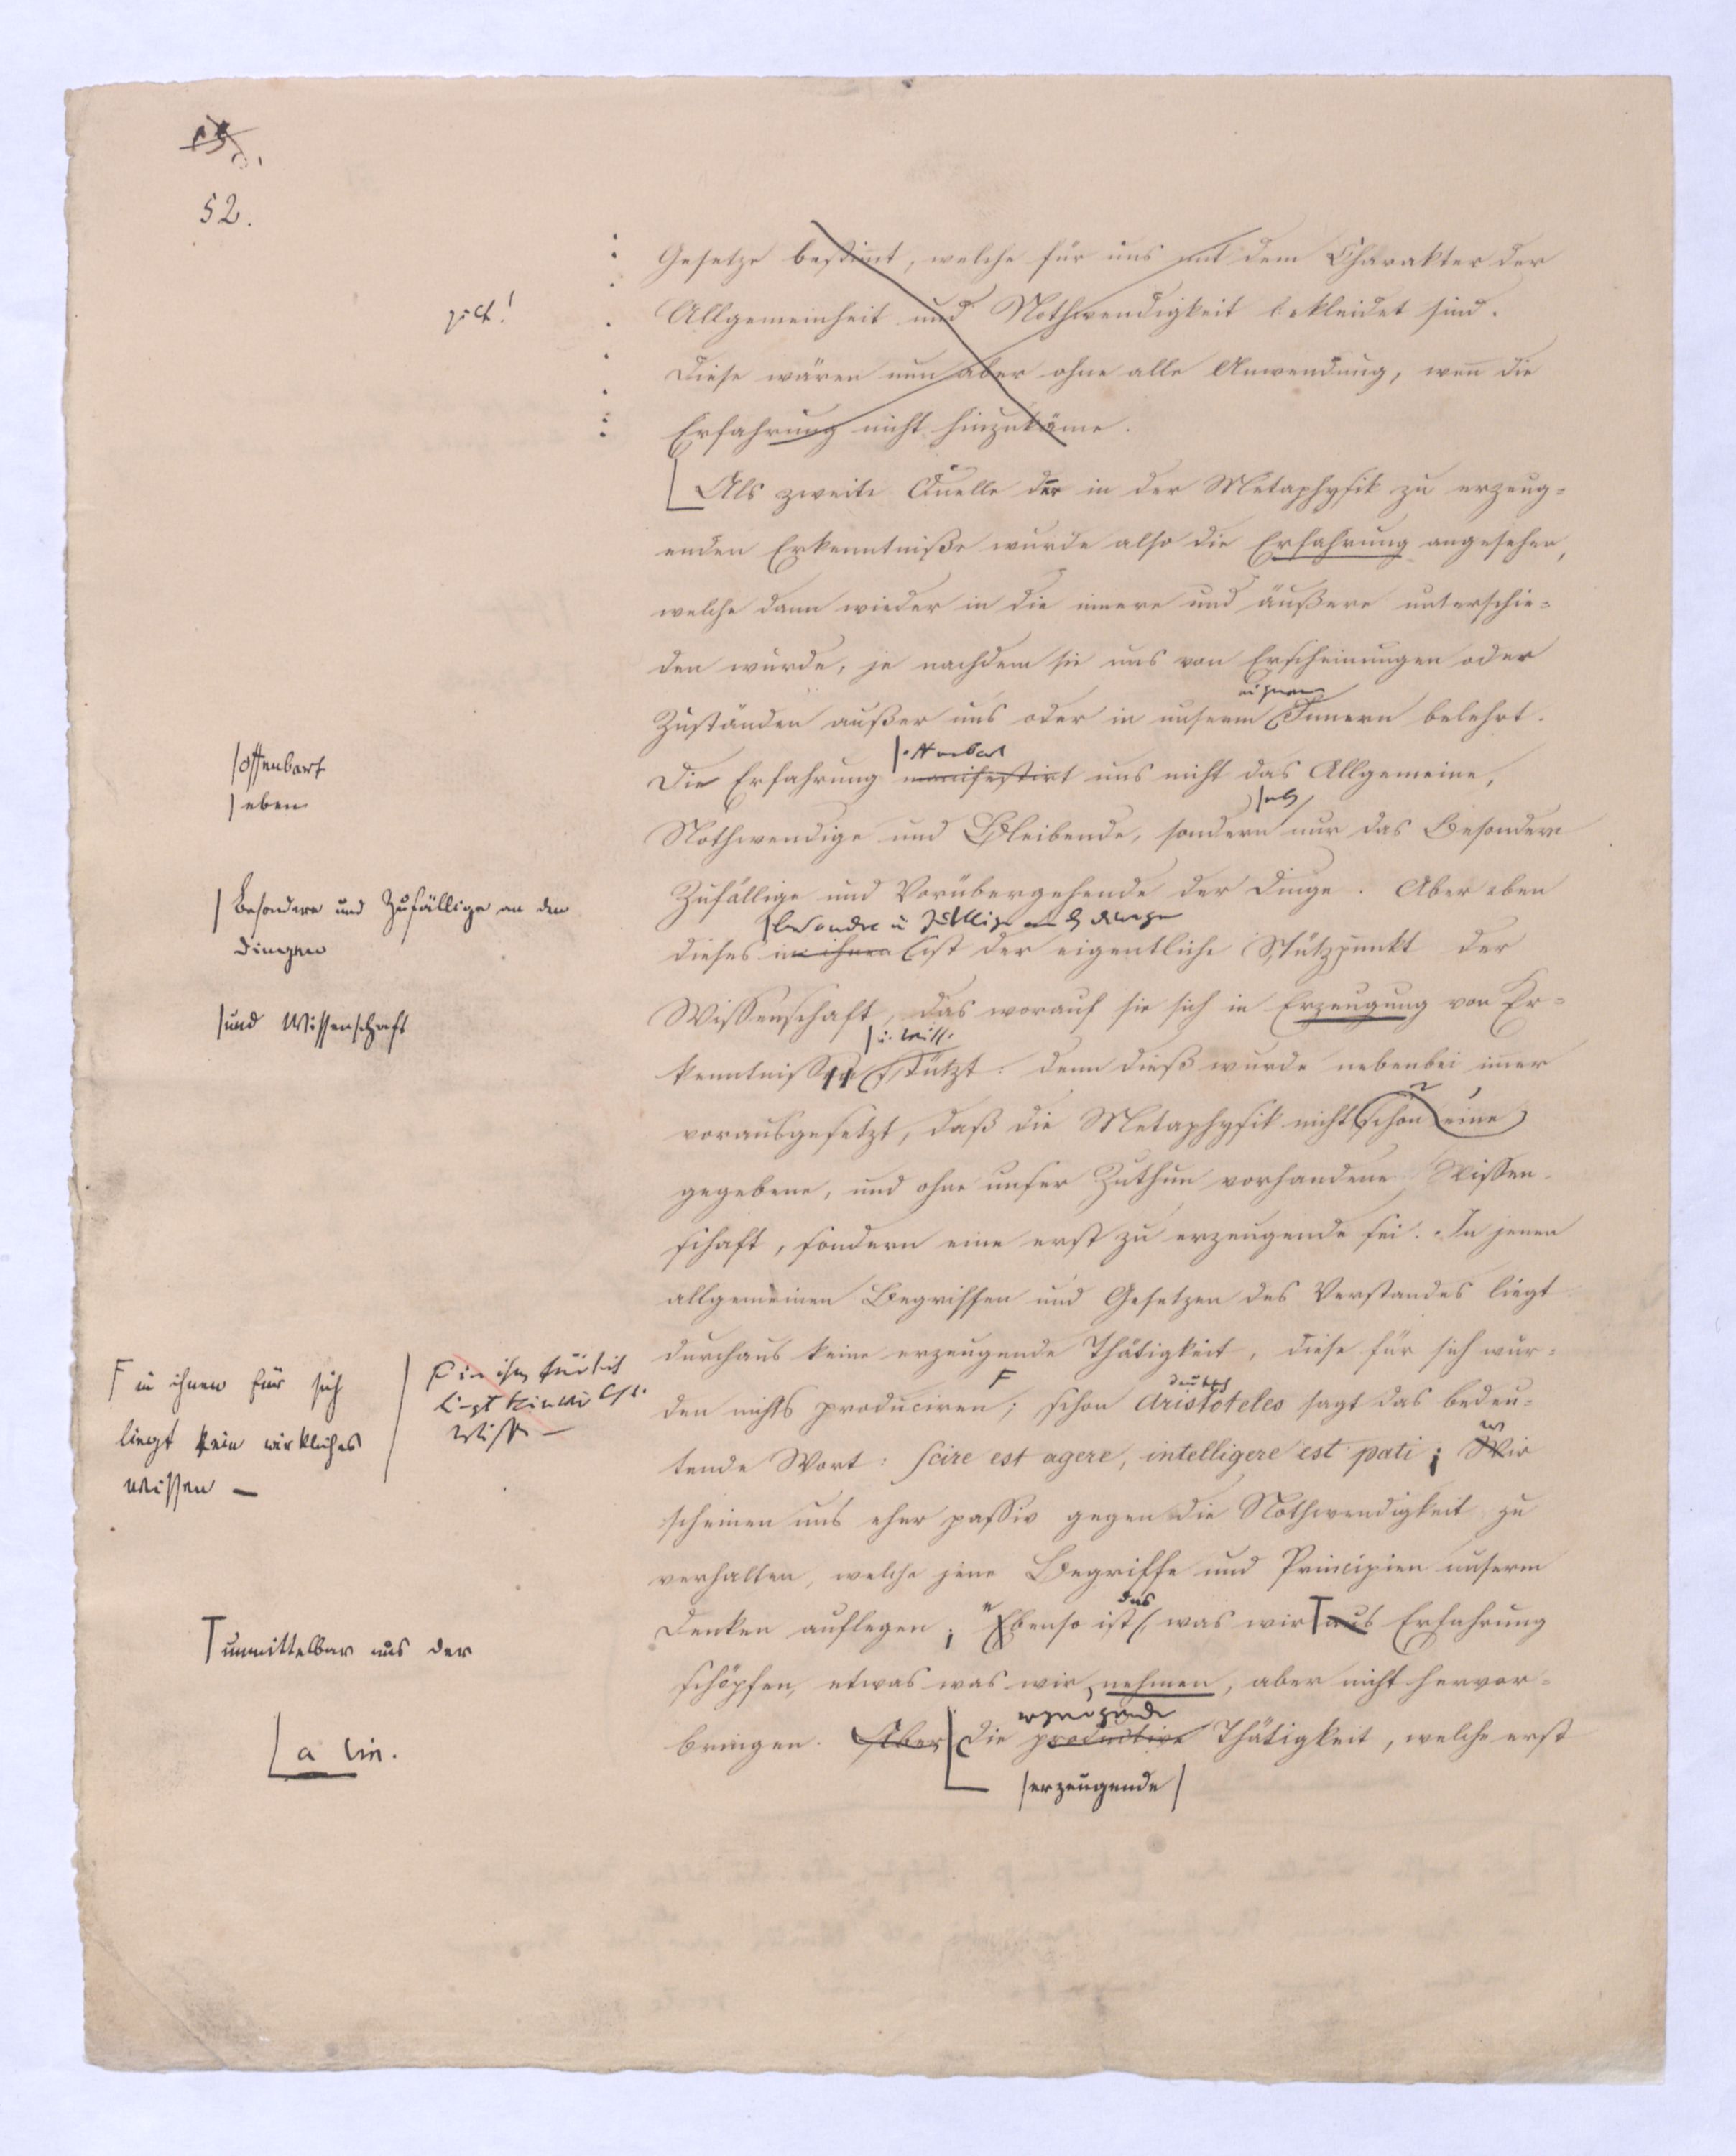 52.
Gesetze bestimt, welche für uns mit dem Charakter der
Allgemeinheit und Nothwendigkeit bekleidet sind.
Diese wären nun aber ohne alle Anwendung, wen̅ die
Erfahrung nicht hinzukäme.
Als zweite Quelle der in der Metaphysik zu erzeug=
enden Erkenntniße wurde also die Erfahrung angesehen,
welche dann wieder in die innere und äußere unterschie=
den wurde, je nachdem sie uns von Erscheinungen oder
eignen
Zuständen außer uns oder in unserm Innern belehrt.
offenbart
|offenbart
Die Erfahrung manifestirt uns nicht das Allgemeine,
|eben
eben
Nothwendige und Bleibende, sondern nur das Besondere
Zufällige und Vorübergehende der Dinge. Aber eben
|Besondere und Zufällige an den
Dingen
besondre u Zufällige an d Dinge
dieses in ihnen ist der eigentliche Stützpunkt der
Wissenschaft, das worauf sie sich in Erzeugung von Er=
|und Wissenschaft
|u. Wiss.
kenntnissen stützt: denn dieß wurde nebenbei im̅er
vorausgesetzt, daß die Metaphysik nicht schon eine
gegebene, und ohne unser Zuthun vorhandene Wissen=
schaft, sondern eine erst zu erzeugende sei. In jenen
allgemeinen Begriffen und Gesetzen des Verstandes liegt
durchaus keine erzeugende Thätigkeit, diese für sich wür=
F in ihnen für sich
liegt kein wirkliches
Wissen —
F in ihn für sich
liegt kein
Wiss —
den nichts produciren; F schon Aristoteles sagt das bedeu=
tende Wort: Scire est agere, intelligere est pati; Wir
scheinen uns eher passiv gegen die Nothwendigkeit zu
verhalten, welche jene Begriffe und Principien unserm
das
Denken auflegen; Ebenso ist, was wir aus Erfahrung
unmittelbar aus der
schöpfen, etwas was wir nehmen, aber nicht hervor=
erzeugende
bringen. Aber die productive Thätigkeit, welche erst
a lin.
|erzeugende|